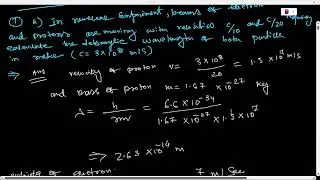 ① a) In neuclear Experiment, beams of electron
and protons are moving with velocities c/10 and c/20
calculate the debroglie wavelength of both particle
in meter (c = 3×10⁸ m/s)
⇒ Ans velocity of proton v = 3×10⁸ / 20 = 1.5×10⁷ m/s
and mass of proton m = 1.67 × 10⁻²⁷ kg
λ = h / mv = 6.6 × 10⁻³⁴ / 1.67 × 10⁻²⁷ × 1.5 × 10⁷
⇒ 2.63 × 10⁻¹⁴ m
of electron 7 m/sec